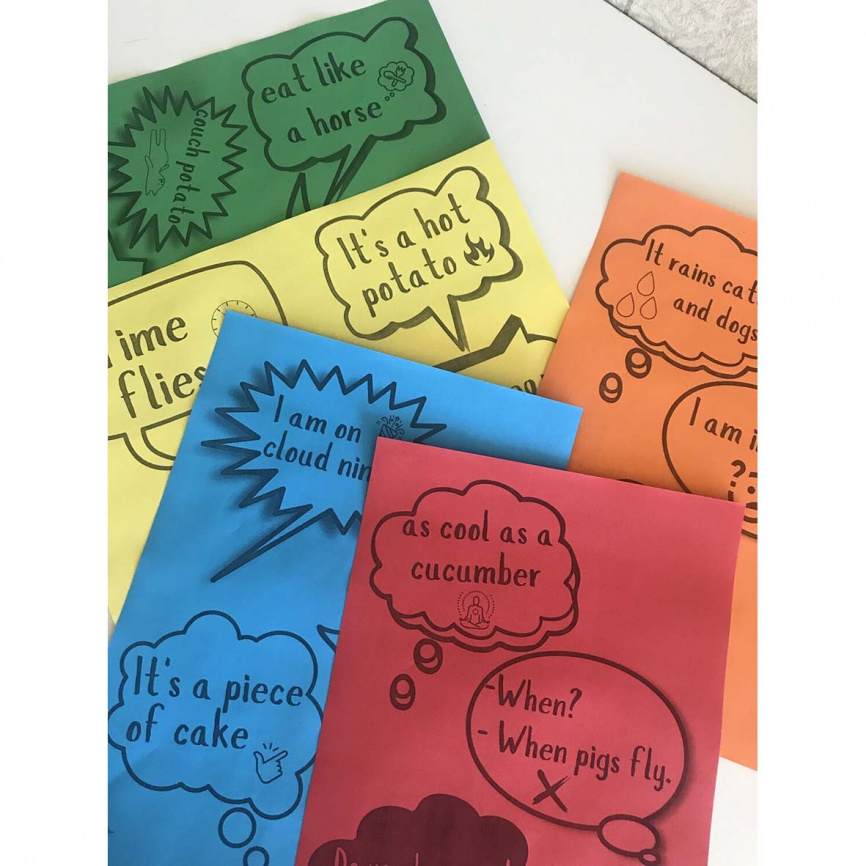 eat like
a horse
couch potato
It's a hot
potato
Time
flies
It rains cat
and dogs
I am i
??
I am on
cloud nin
as cool as a
cucumber
It's a piece
of cake
-When?
- When pigs fly.